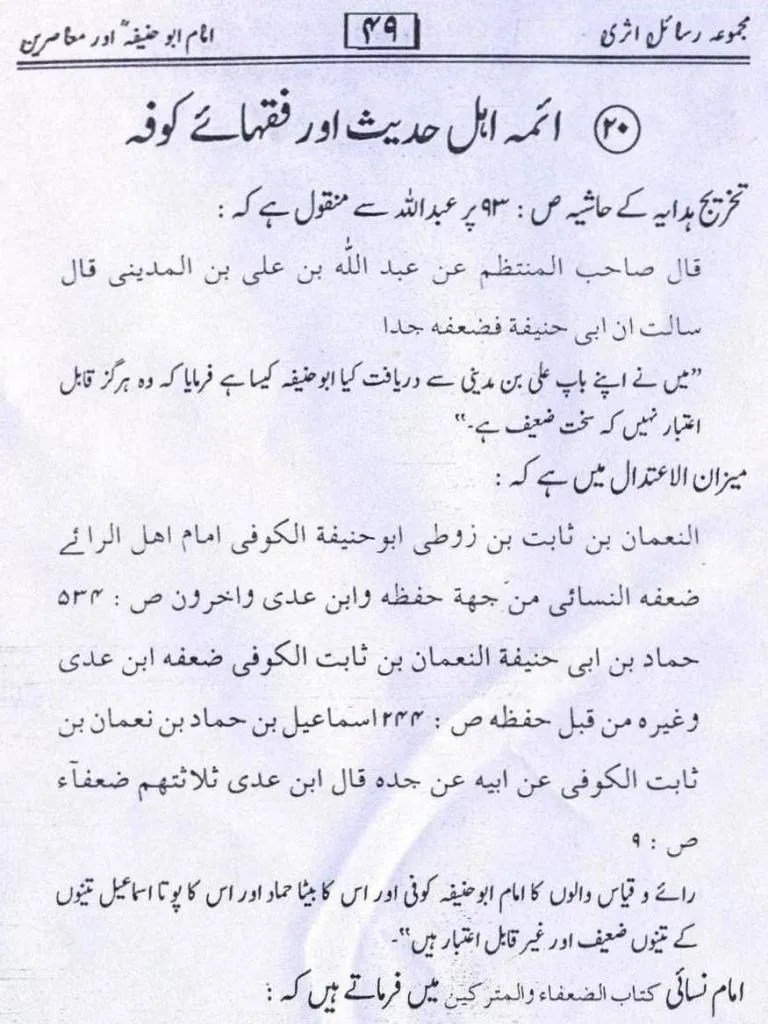 مجموعہ رسائل اثری ۴۹ امام ابو حنیفہؒ اور معاصرین
۲۰ ائمہ اہل حدیث اور فقہائے کوفہ
تخریج ہدایہ کے حاشیہ ص : ۹۳ پر عبداللہ سے منقول ہے کہ :
قال صاحب المنتظم عن عبد اللّٰه بن علی بن المدینی قال
سالت ان ابی حنیفة فضعفه جدا
”میں نے اپنے باپ علی بن مدینی سے دریافت کیا ابوحنیفہ کیسا ہے فرمایا کہ وہ ہرگز قابل
اعتبار نہیں کہ سخت ضعیف ہے۔“
میزان الاعتدال میں ہے کہ :
النعمان بن ثابت بن زوطی ابوحنیفة الکوفی امام اهل الرائے
ضعفه النسائی من جهة حفظه وابن عدی واخرون ص : ۵۳۴
حماد بن ابی حنیفة النعمان بن ثابت الکوفی ضعفه ابن عدی
وغیره من قبل حفظه ص : ۲۴۴ اسماعیل بن حماد بن نعمان بن
ثابت الکوفی عن ابیه عن جده قال ابن عدی ثلاثتهم ضعفآء
ص : ۹
رائے و قیاس والوں کا امام ابوحنیفہ کوفی اور اس کا بیٹا حماد اور اس کا پوتا اسماعیل تینوں
کے تینوں ضعیف اور غیر قابل اعتبار ہیں“۔
امام نسائی کتاب الضعفاء والمترکین میں فرماتے ہیں کہ :